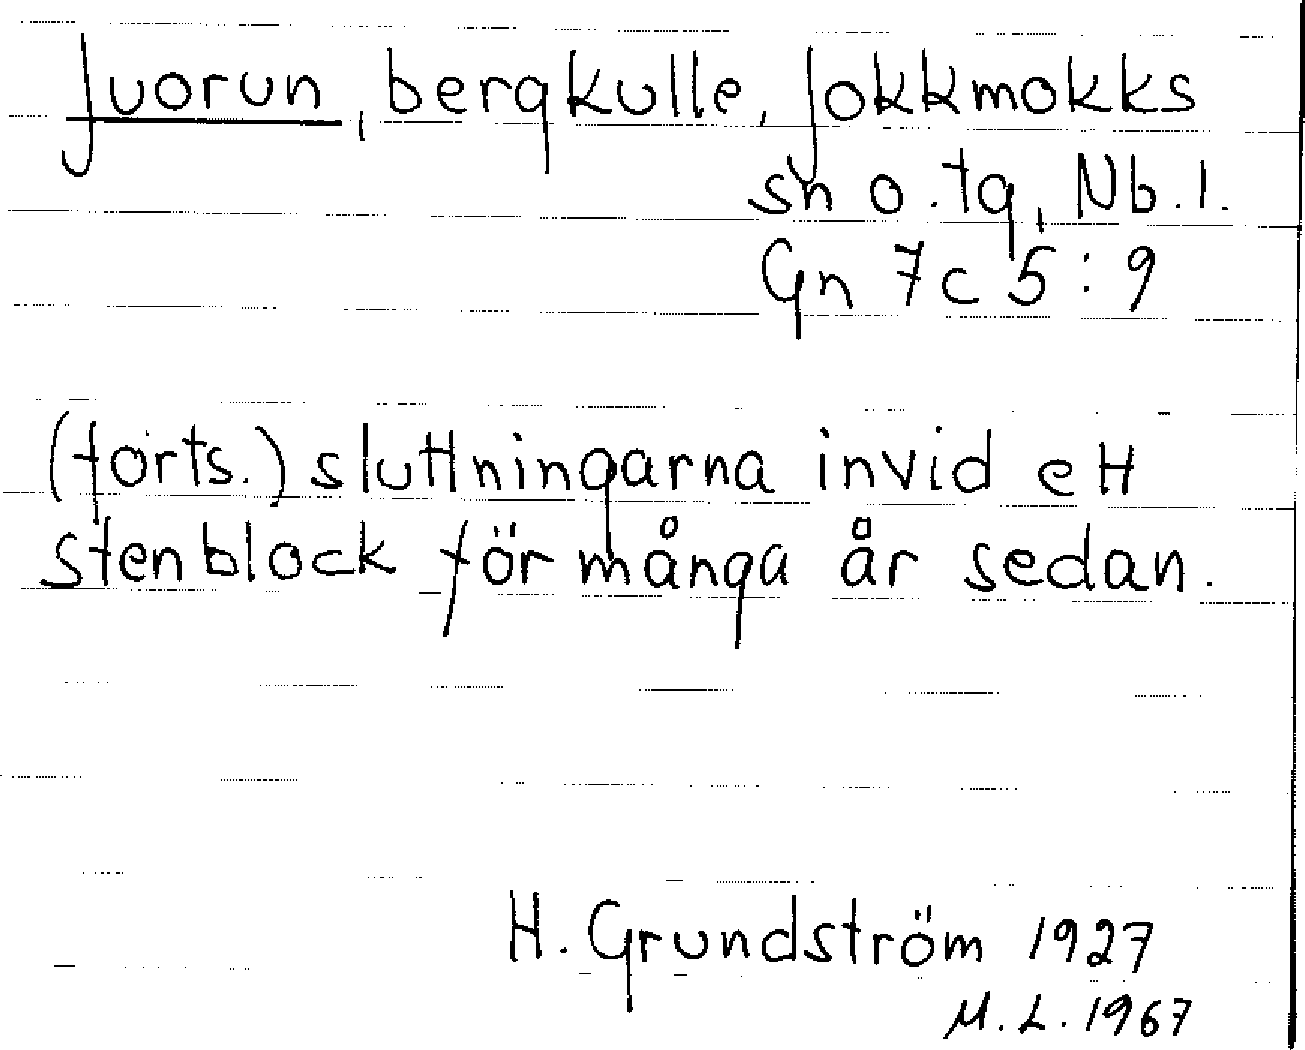 Juorun, bergkulle, Jokkmokks
sn o. tg, Nb. l.
Gn 7c 5:9
(forts.) sluttningarna invid ett
stenblock för många år sedan.
H. Grundström 1927
M.L. 1967